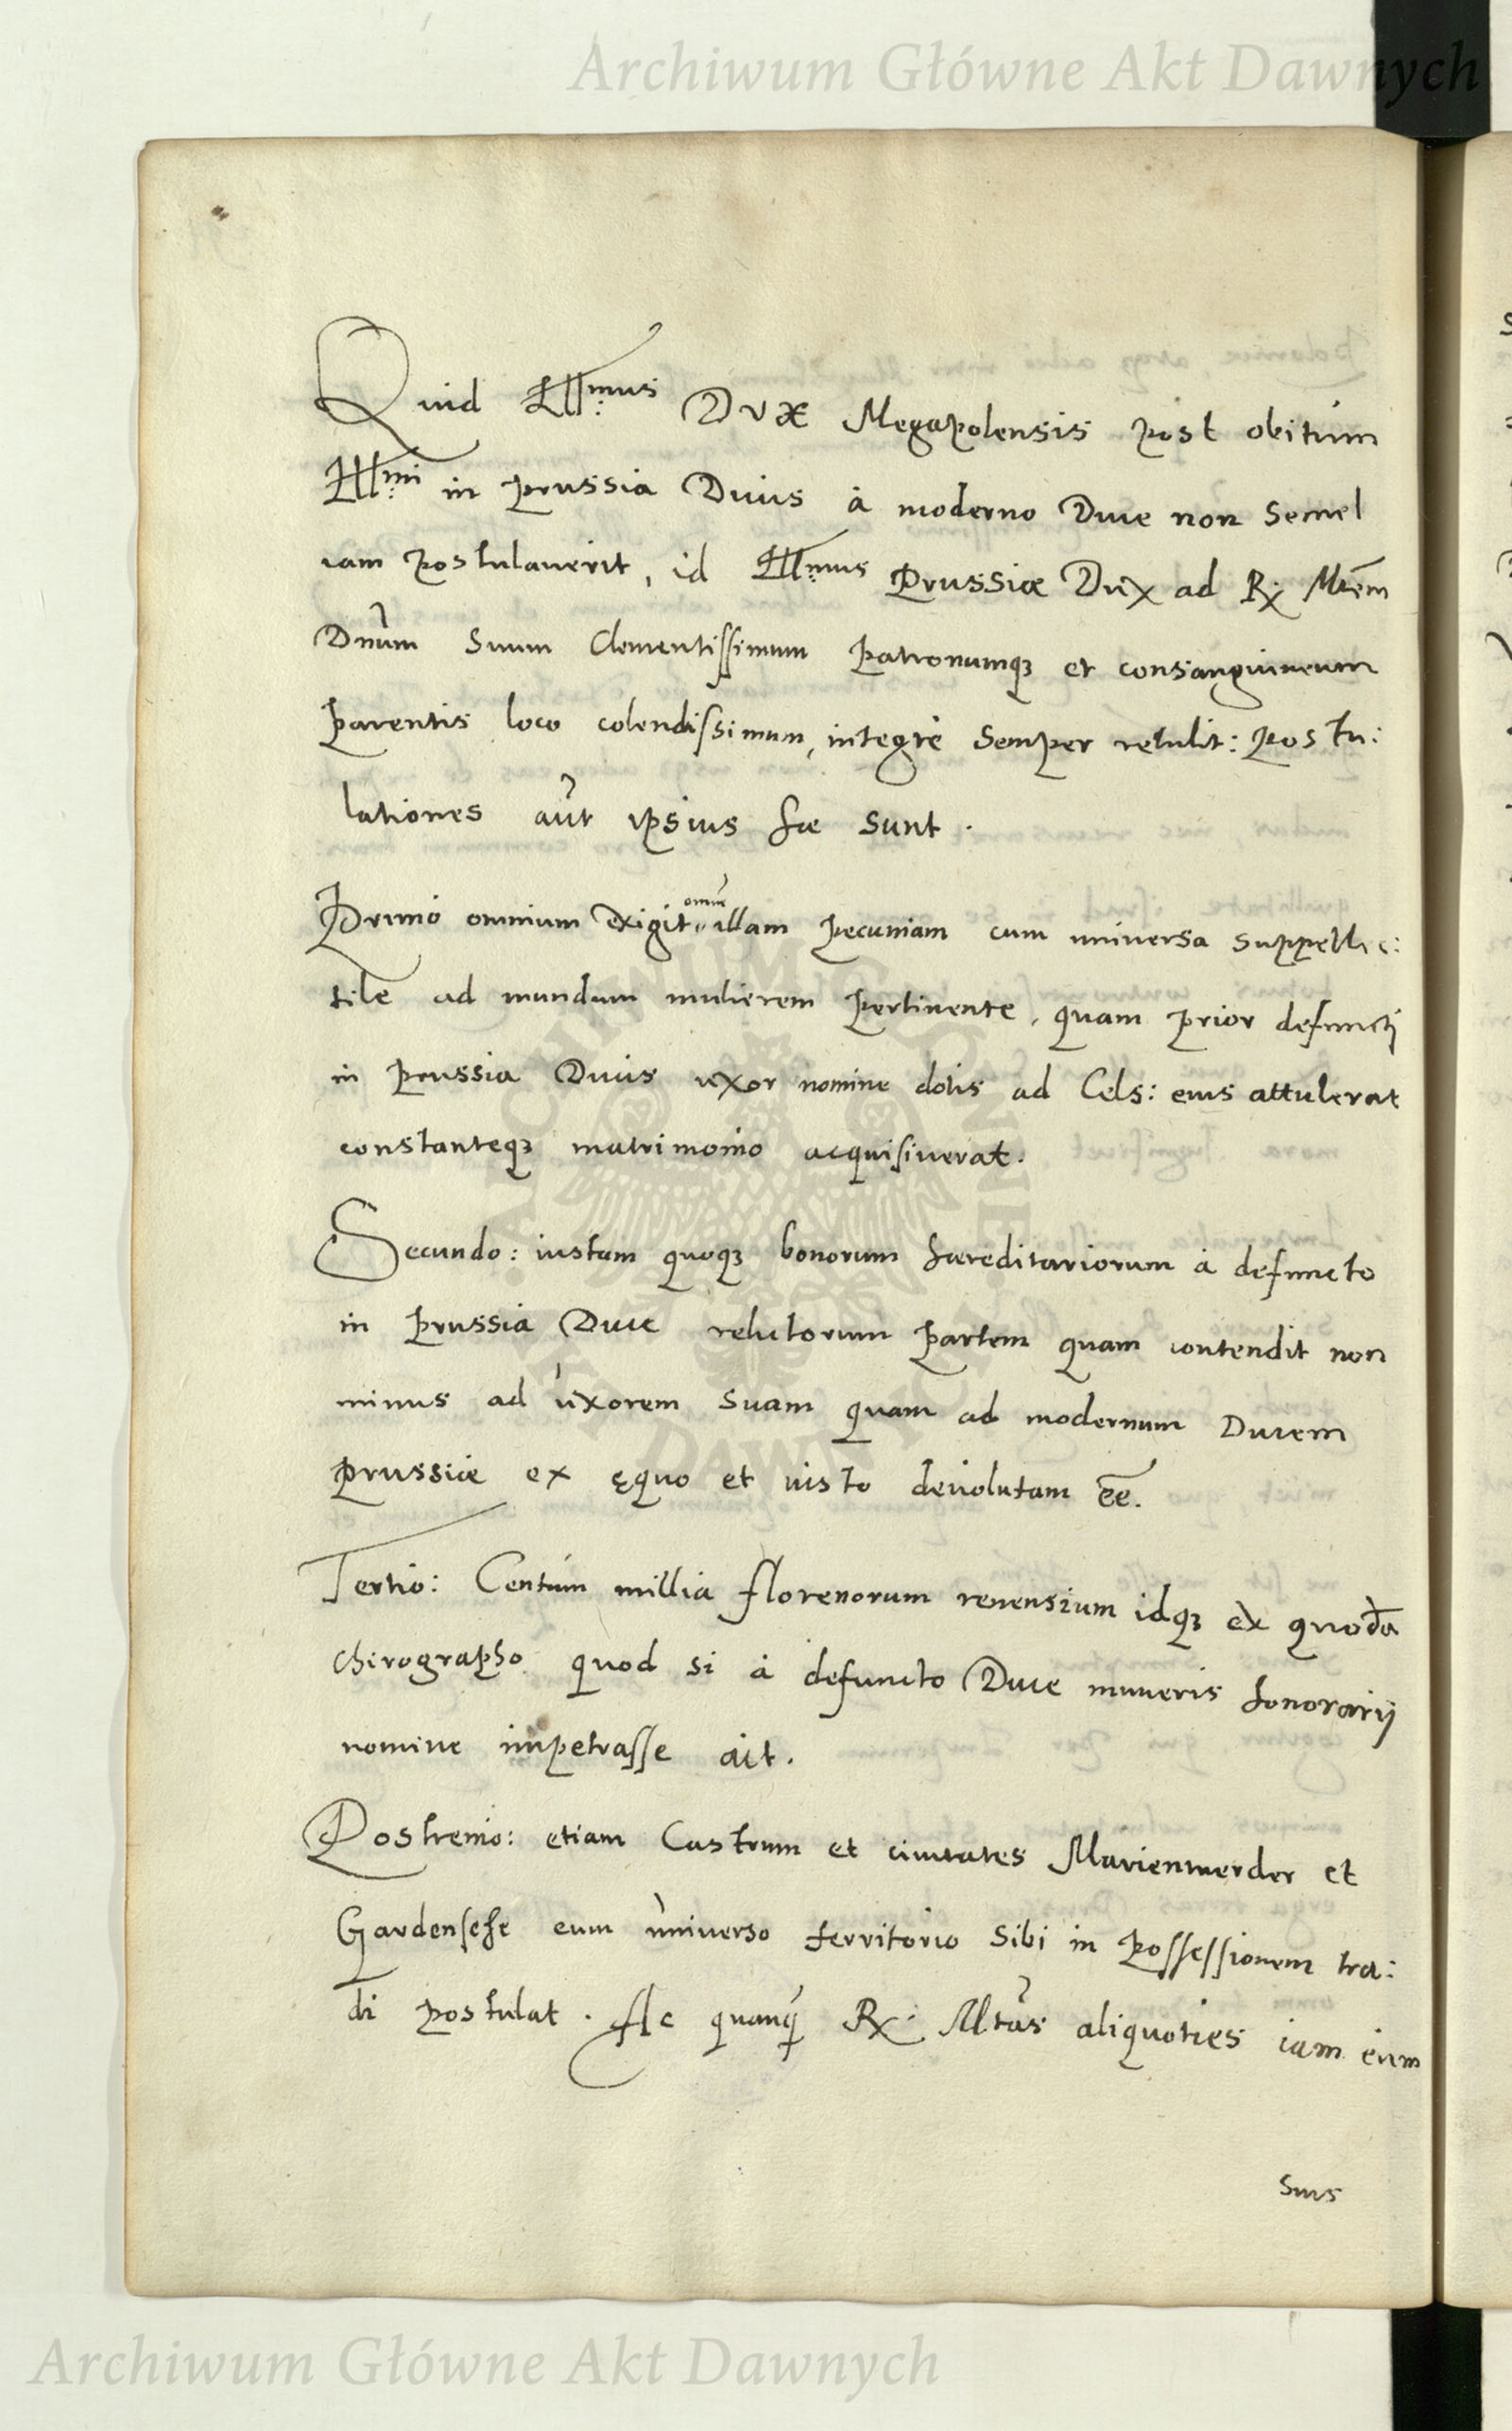 Archiwum Główne Akt Dawnych
Quid Illmus Dux Megapolensis post obitum
Illmi in Prussia Ducis à moderno Duce non semel
iam postulaverit, id Illmus Prussiæ Dux ad Rx Mtem
Dnum Suum Clementissimum patronumq3 et consanguineum
parentis loco colendissimum, integrè semper retulit: postu:
lationes aut ipsius hæ sunt.
Primò omnium exigit omnē illam pecuniam cum universa suppellec:
tile ad mundum muliebrem pertinente, quam prior defuncti
in Prussia Ducis uxor nomine dotis ad Cels: eius attulerat
constanteq3 matrimonio acquisiverat.
Secundo: iustam quoq3 bonorum hæreditariorum à defuncto
in Prussia Duce relictorum partem quam contendit non
minus ad uxorem suam quam ad modernum Ducem
Prussiæ ex ęquo et iusto devolutam ēē.
Tertio: Centum millia florenorum renensium idq3 ex quodā
chirographo quod si à defuncto Duce muneris honorarij
nomine impetrasse ait.
Postremò: etiam Castrum et civitates Marienwerder et
Gardensehe cum universo territorio sibi in possessionem tra:
di postulat. Ac quanq̃ Rx: Mtas aliquoties iam eum
suis
ARCHIWUM GŁÓWNE AKT DAWNYCH
Archiwum Główne Akt Dawnych